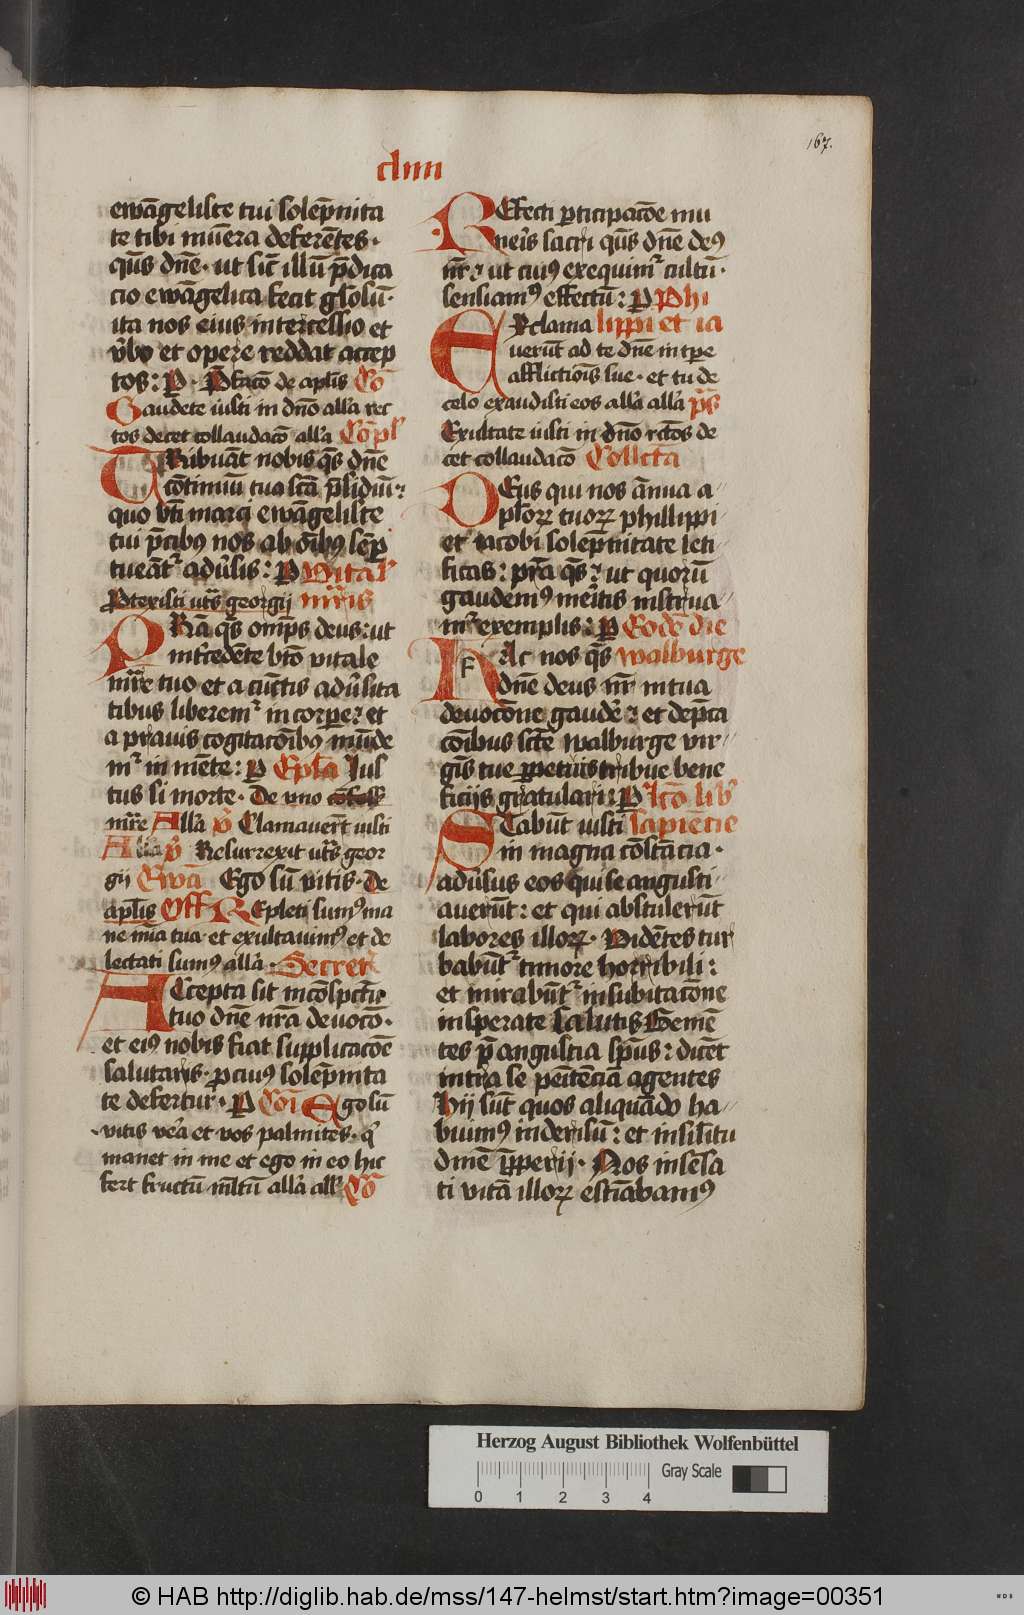 167.
clxiiii
ewāgeliste tui solēpnita
te tibi mūera deferētes·
qūs dn̄e· ut sic̄ illū p̄dica
cio ewāgelica fecit gl̄osū·
ita nos eius intercessio et
v̄bo et opere reddat accep
tos: P · P̄facō de apl̄is Cō
Gaudete iusti in dn̄o all'a rec
tos decet collaudacō all'a Cōpl'
TRibuāt nobis q̄s dn̄e
cōtinuū tua sc̄a p̄sidiū:
quo bt̄i marci ewāgeliste
tui p̄cibꝰ nos ab oībꝰ sēp
tueāt᷑ adūsis: P Vital'
Ptexisti ut̄s georgij mr̄is
PRa q̄s om̄ps deus: ut
int̄cedēte bt̄o vitale
mr̄e tuo et a cūctis adūsita
tibus liberem᷑ in corpe: et
a prauis cogitacōibꝰ mūde
m᷑ in mēte: P Epl̄a Jus
tus si morte· De vno
mr̄e All'a v̄ Clamauer̄t iusti
Alia v̄ Resurrexit ut̄s geor
gij Ewā Ego sū vitis· De
apl̄is Off REpleti sumꝰ ma
ne mīa tua· et exultauimꝰ et de
lectati sumꝰ all'a· Secret
ACcepta sit in cōspctu
tuo dn̄e nr̄a deuocō·
et eiꝰ nobis fiat supplicacōe
salutaris· p cuiꝰ solēpnita
te defertur· P Coī Ego sū
vitis vera et vos palmites· q'
manet in me et ego in eo hic
fert fructū m̄ltū all'a all' Cō
REfecti pticipacōe mu
neris sacri qūs dn̄e deꝰ
nr̄ ut cuiꝰ exequim᷑ cultū·
sensiamꝰ effectū: P Phi
EXclama lippi et ia
uerūt ad te dn̄e in tpe
afflictiois sue· et tu de
celo exaudisti eos all'a all'a p̄s
Exultate iusti in dn̄o rc̄os de
cet collaudacō Collc̄ta
DEus qui nos ānua a
pl̄oꝝ tuoꝝ phillippi
et iacobi solēpnitate leti
ficas: pr̄a q̄s: ut quorū
gaudemꝰ meritis instrua
m᷑ exemplis: P Eodē die
FAc nos q̄s walburge
dn̄e deus nr̄ in tua
deuocōne gaudē: et dep̄ca
cōibus sc̄te walburge vir
gīs tue ppetuis tribue bene
ficijs gratulari: P Lcō lib'
STabūt iusti sapiecie
in magna cōstācia·
adūsus eos qui se angusti
auerūt: et qui abstulerūt
labores illoꝝ· Videtes tur
babūt᷑ timore horribili:
et mirabūt᷑ in subitacōne
insperate salutis Gemē
tes p̄ angustia sp̄us: dicēt
intra se peīteciā agentes
Hij sūt quos aliquādo ha
buimꝰ in derisū: et in silitu
dinē ip̄perij· Nos insēsa
ti vitā illoꝝ estīabamꝰ
Herzog August Bibliothek Wolfenbüttel
Gray Scale
0 1 2 3 4
© HAB http://diglib.hab.de/mss/147-helmst/start.htm?image=00351